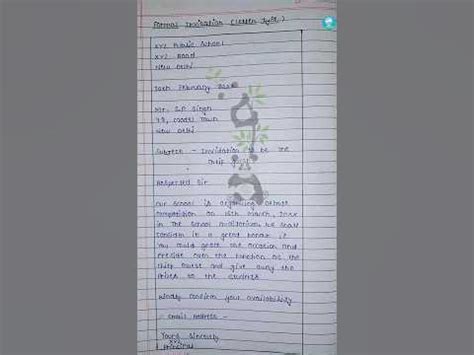 Formal Invitation (Letter Type)
XYZ Public School
XYZ Road
New Delhi
February
Mr. S.P. Singh
Model Town
New Delhi
Subject - Invitation to be the
Chief guest
Respected Sir
Our school is organising
competition on 16th March,
in the school auditorium. We shall
consider it a great honour if
you could grace the occasion and
preside over the function as the
chief guest and give away the
prizes to the students
Kindly confirm your availability
- Email address -
Yours sincerely
XYZ
Principal